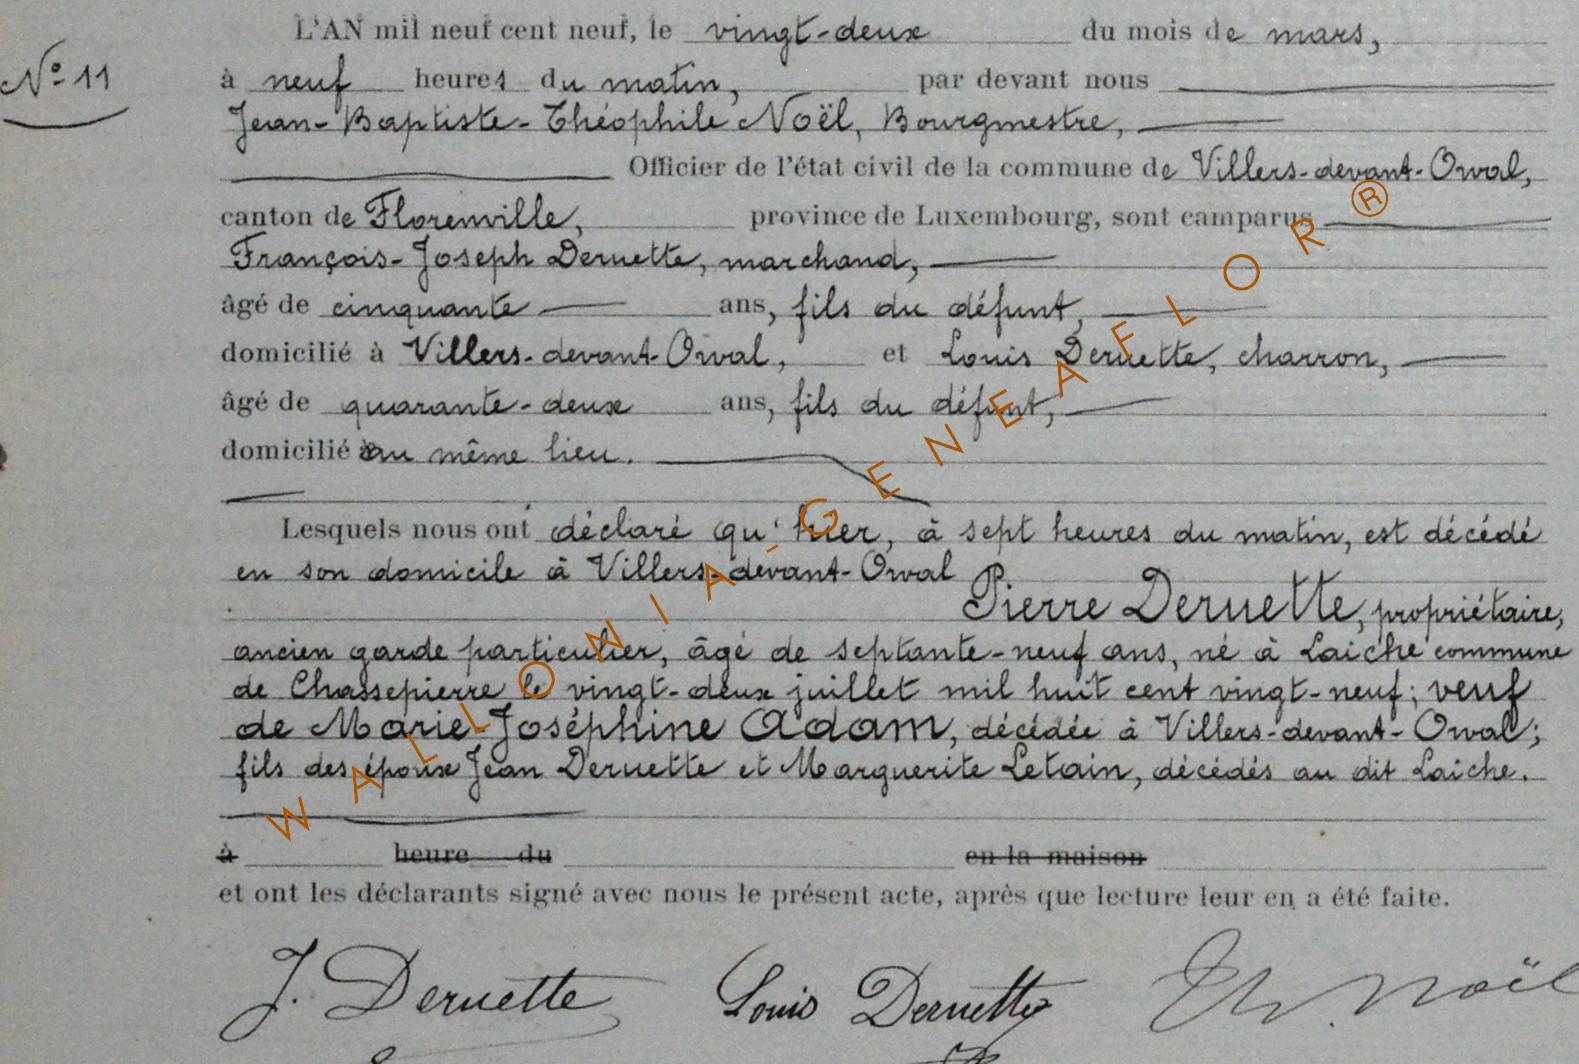 L'AN mil neuf cent neuf, le vingt-deux du mois de mars,
N° 11
à neuf heures du matin, par devant nous
Jean-Baptiste-Théophile Noël, Bourgmestre,
Officier de l'état civil de la commune de Villers-devant-Orval,
canton de Florenville, province de Luxembourg, sont comparus
François-Joseph Deruette, marchand,
âgé de cinquante ans, fils du défunt,
domicilié à Villers-devant-Orval, et Louis Deruette, charron,
âgé de quarante-deux ans, fils du défunt,
domicilié au même lieu.
Lesquels nous ont déclaré qu'hier, à sept heures du matin, est décédé
en son domicile à Villers-devant-Orval
Pierre Deruette, propriétaire,
ancien garde particulier, âgé de septante-neuf ans, né à Laiche commune
de Chassepierre le vingt-deux juillet mil huit cent vingt-neuf; veuf
de Marie-Joséphine Adam, décédée à Villers-devant-Orval;
fils des époux Jean Deruette et Marguerite Letain, décédés au dit Laiche.
à heure du en la maison
et ont les déclarants signé avec nous le présent acte, après que lecture leur en a été faite.
J. Deruette Louis Deruette Th. Noël
WALLONIA-GENEAFLOR®